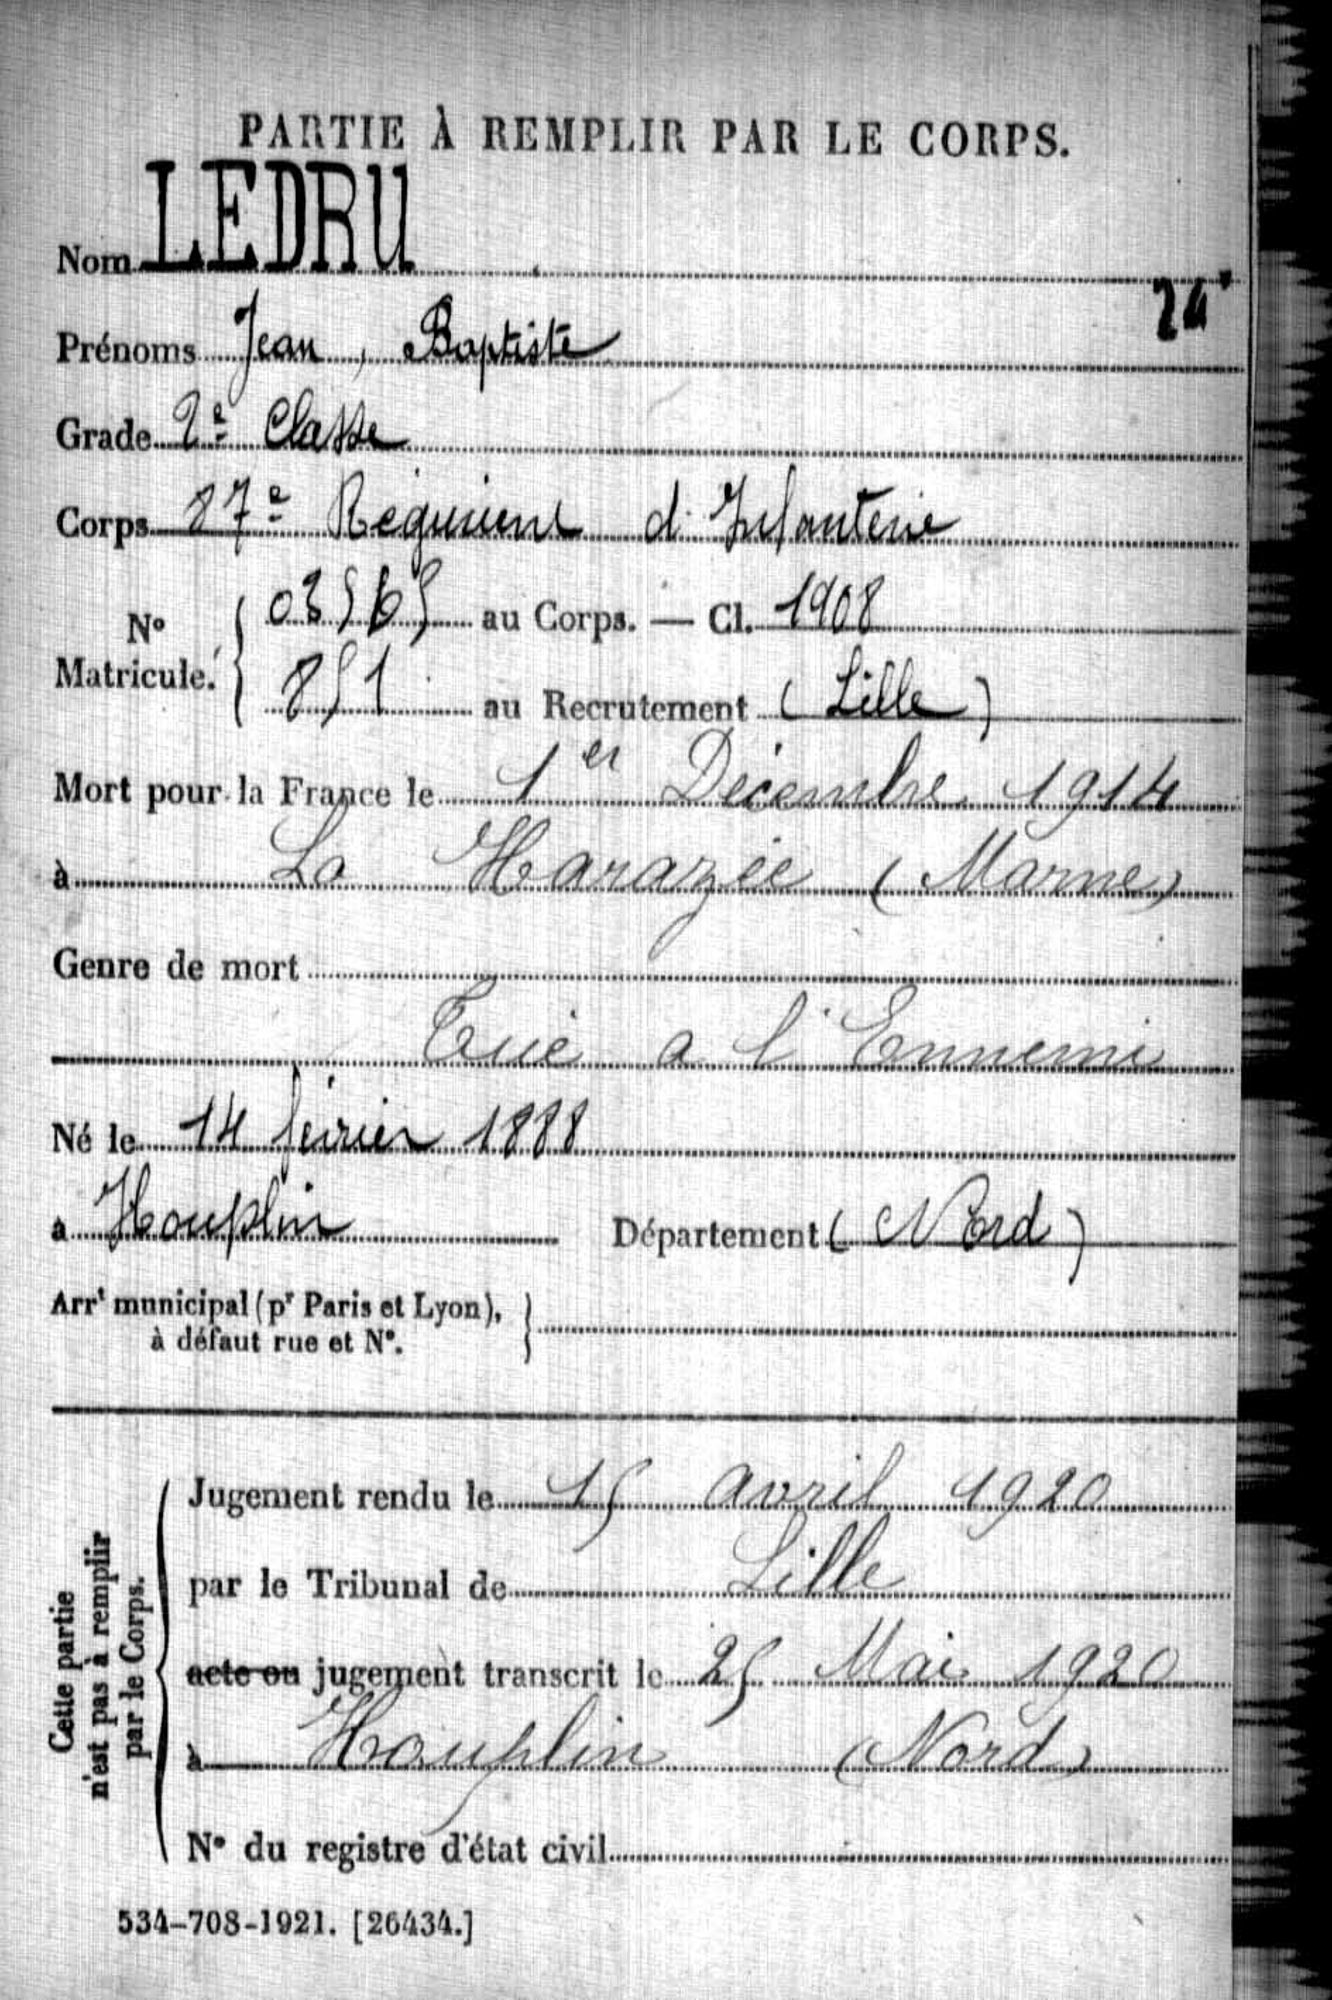 PARTIE À REMPLIR PAR LE CORPS.
Nom LEDRU
24
Prénoms Jean, Baptiste
Grade 2e Classe
Corps 87e Régiment d'Infanterie
No Matricule. 03565 au Corps. — Cl. 1908
851 au Recrutement (Lille)
Mort pour la France le 1er Décembre 1914
à La Harazée (Marne)
Genre de mort
Tué a l'Ennemi
Né le 14 février 1888
à Houplin Département (Nord)
Arrt municipal (pr Paris et Lyon),
à défaut rue et N°.
Cette partie
n'est pas à remplir
par le Corps.
Jugement rendu le 15 avril 1920
par le Tribunal de Lille
acte ou jugement transcrit le 25 Mai 1920
à Houplin (Nord)
N° du registre d'état civil
534-708-1921. [26434.]